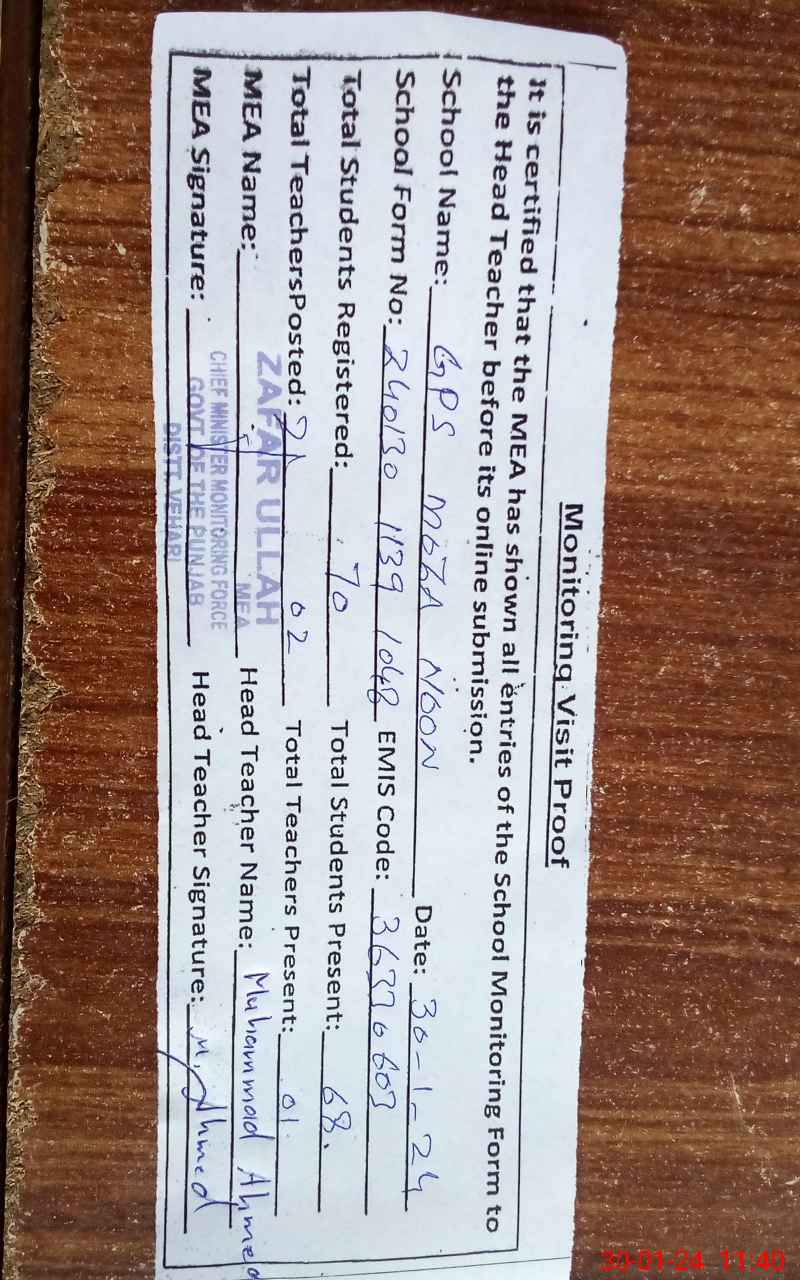 Monitoring Visit Proof
It is certified that the MEA has shown all entries of the School Monitoring Form to
the Head Teacher before its online submission.
School Name: GPS MOZA NOON Date: 30-1-24
School Form No: 240130 1139 1048 EMIS Code: 36370603
Total Students Registered: 70 Total Students Present: 68.
Total TeachersPosted: 02 Total Teachers Present: 01.
MEA Name: ZAFAR ULLAH Head Teacher Name: Muhammad Ahmed
MEA
MEA Signature: Head Teacher Signature: M. Ahmed
CHIEF MINISTER MONITORING FORCE
GOVT OF THE PUNJAB
DISTT. VEHARI
30-01-24 11:40